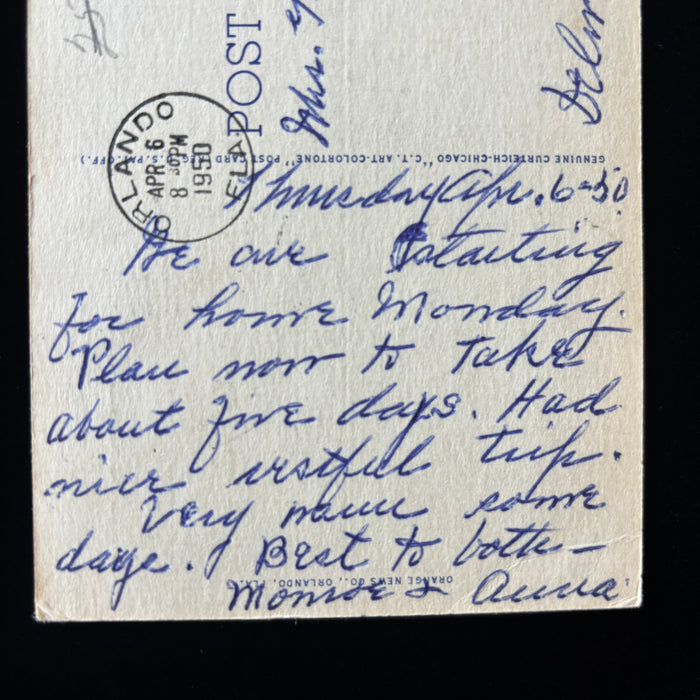 POST
Mrs.
ORLANDO
APR 6
8 30 PM
1950
FLA
GENUINE CURTEICH-CHICAGO "C.T. ART-COLORTONE" POST CARD (REG. U.S. PAT. OFF.)
Thursday Apr. 6-50
We are starting
for home Monday.
Plan now to take
about five days. Had
nice restful trip.
Very warm some
days. Best to both—
ORANGE NEWS CO., ORLANDO, FLA.
Monroe & Anna